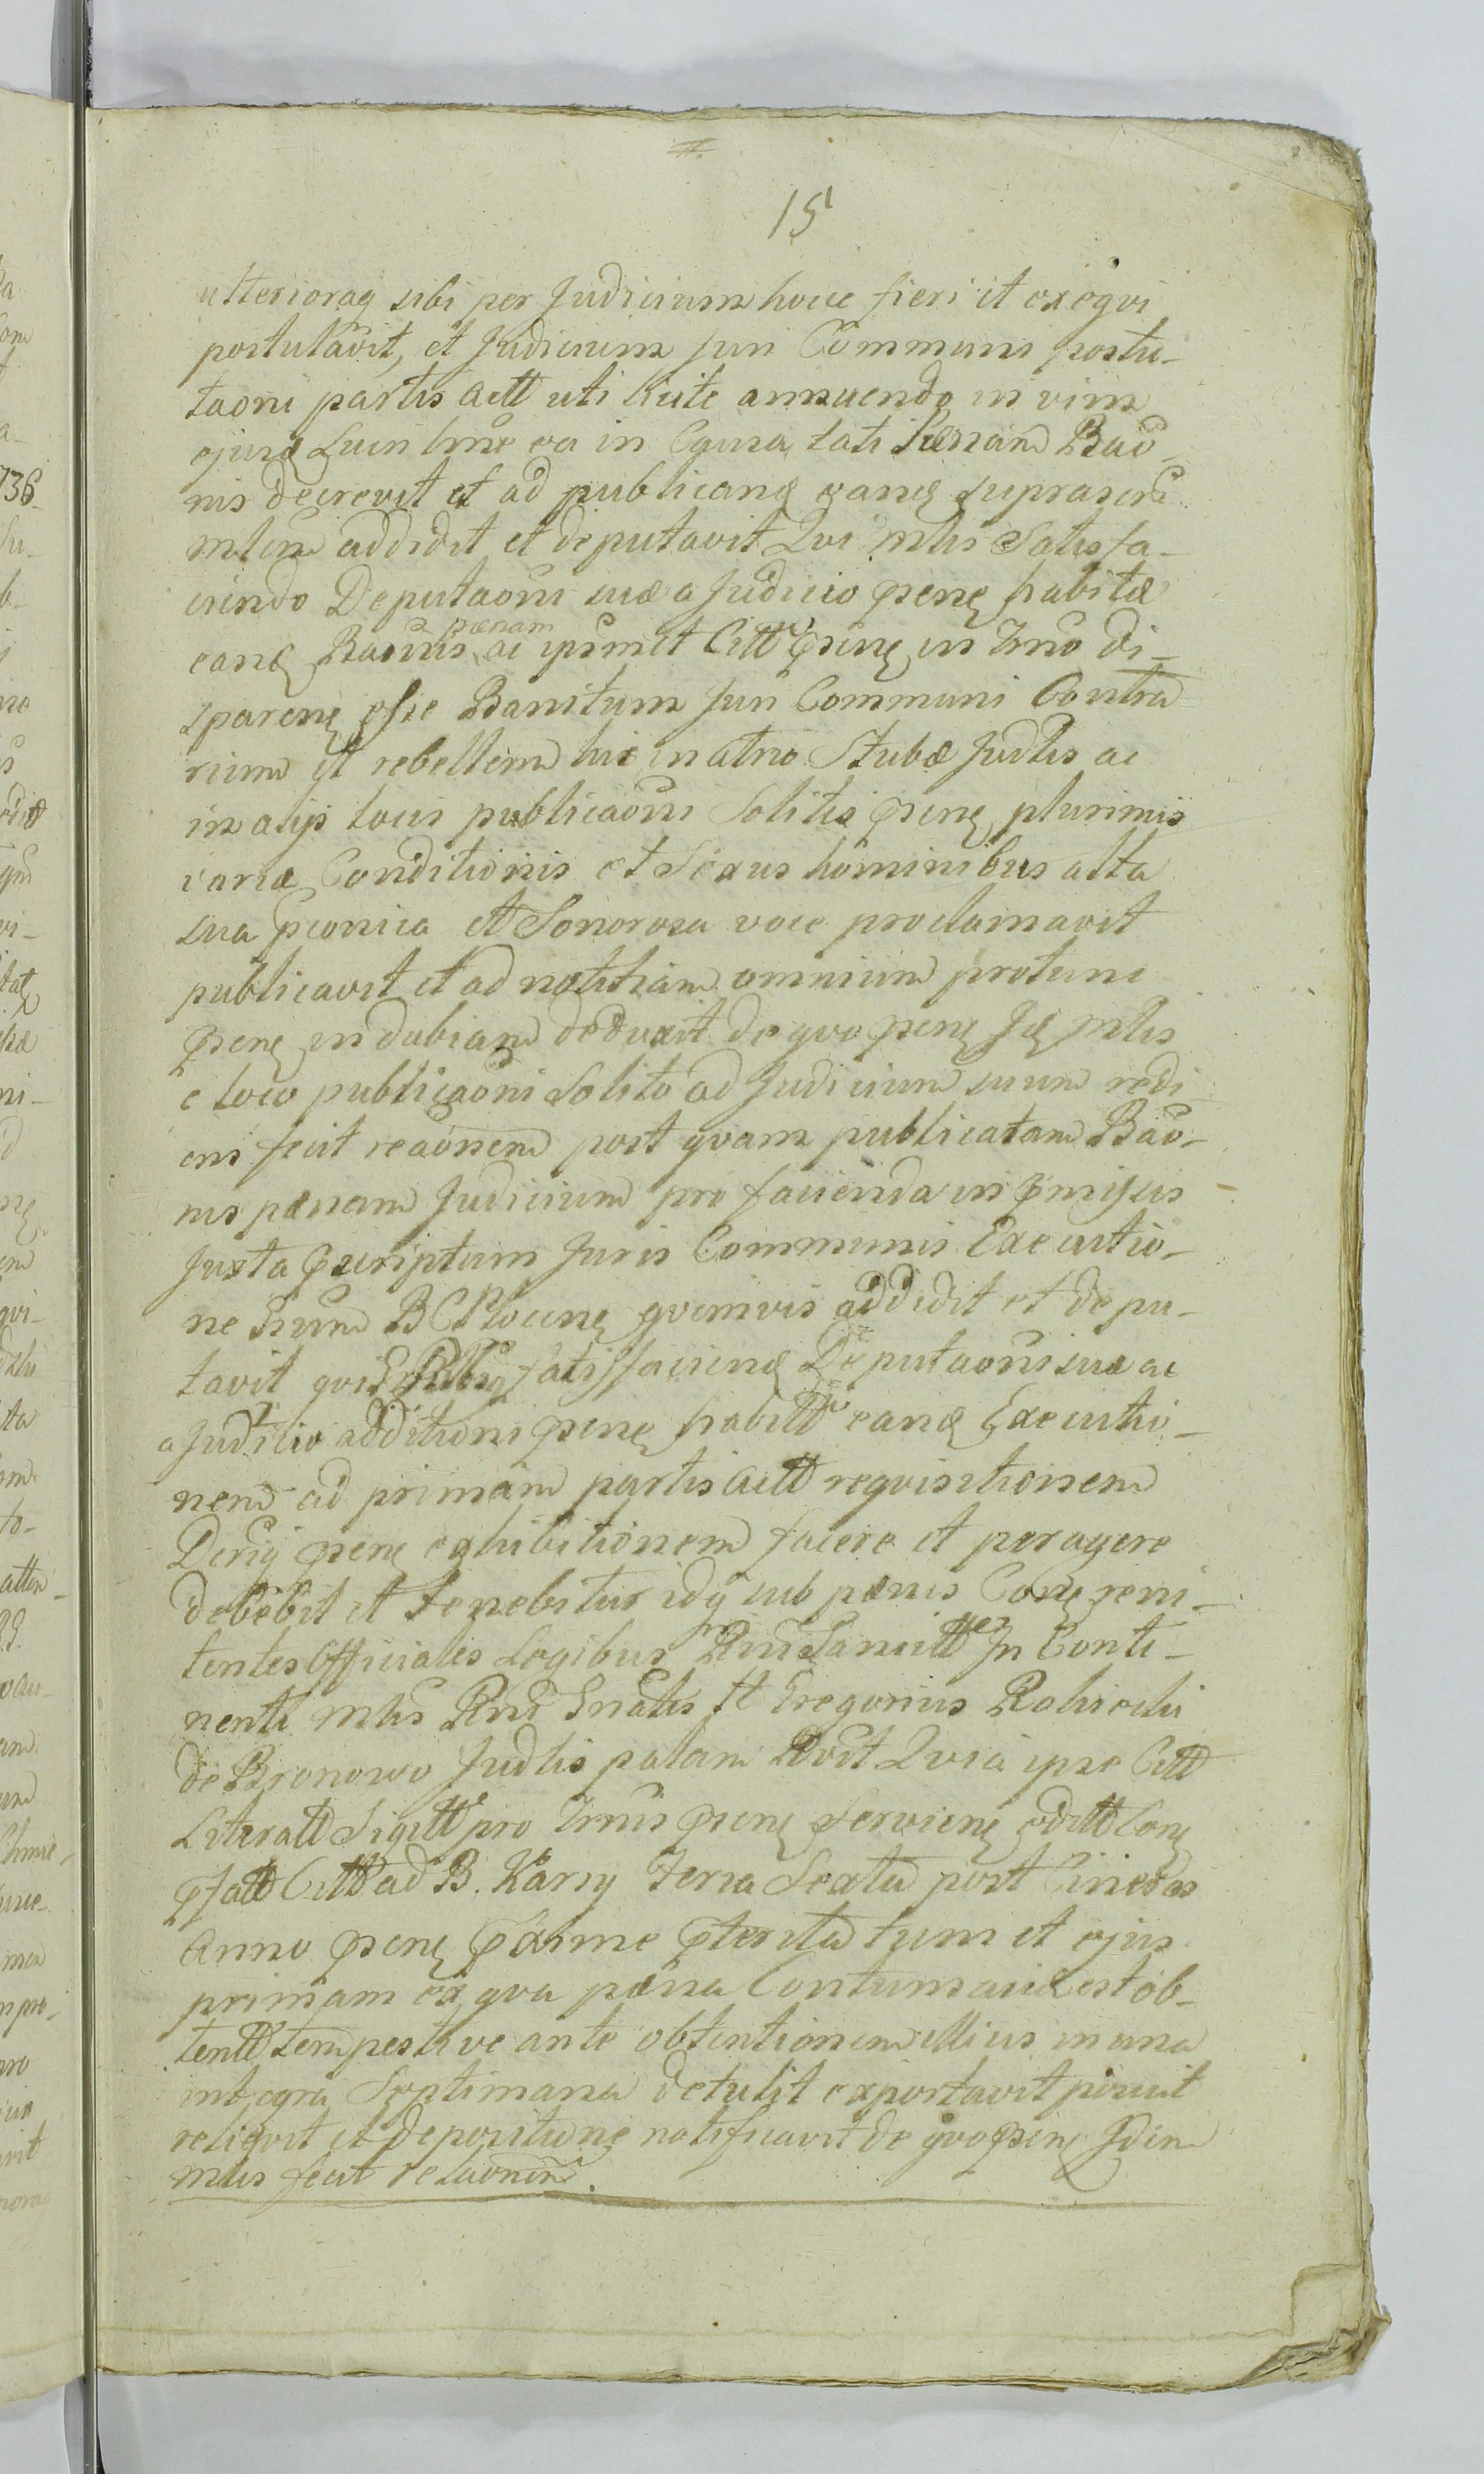 15
ulterioraq sibi per Judicium hocce fieri et exeqvi
postulavit, et Judicium Juri Communi postu-
laoni partis actt uti licite annuendo in vim
ejusd Lucri hmoe ea in Causa lati Paenam Bao-
nis decrevit et ad publicand eand suprascr
mlem addidit et deputavit Qvi mlis Satisfa-
ciendo Deputaoni suae a Judicio psenę habitae
eand Baonis paenam ac ipsmet Citt psenę in Tmo
sparenę esse Banitum Juri Communi Contra
rium et rebellem hic in atrio Stubae Judlis ac
in alijs locis publicaoni Solitis psenę plurimis
variae Conditionis et Sexus hominibus alta
sua praeconica et Sonorosa voce proclamavit
publicavit et ad notitiam omnium protunc
psenę indubiam deduxit de qvo psenę Id mlis
e loco publicaoni Solito ad Judicium suum redi
ens fecit reaonem post qvam publicatam Bao-
nis paenam Judicium pro facienda in pmissis
Juxta pscriptum Juris Communis Executio-
ne BCPlocenę qvemvis addidit et depu-
tavit qvi satisfaciend Deputaoni suae ac
a Judicio additioni psenę habitt eand Executio-
nem ad primam partis actt reqvisitionem
psenę exhibitionem facere et peragere
debebit et tenebitur idq sub paenis Conę reni-
tentes Officiales Legibus Rni Sancitt In Conti-
nenti mlis Rni Gnalis Gregorius
de Bronowo Judlis palam Rvit Qvia ipse Citt
Literatt Sigitt pro Tmis psenę Servienę editt Conę
pfatt Citt ad B. Karsy Feria Sexta post Cineres
Anno psenę pxime pterita tum et ejus
primam ex qva paena Contumaciae est ob-
tentt tempestive ante obtentionem illius in una
integra Septimana detulit exportavit posuit
reliqvit et depositionę notificavit de qvo psenę Idem
mlis fecit relaonem.